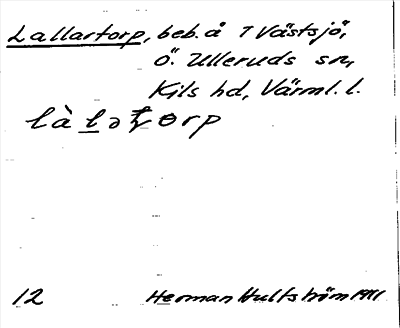 Lallartorp, beb. å 1 Västsjö,
Ö. Ulleruds sn,
Kils hd, Värml. l.
làlət̩orp
12 Herman Hultström 1911